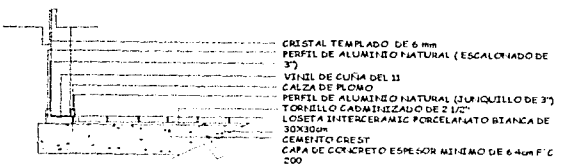 CRISTAL TEMPLADO DE 6 mm
PERFIL DE ALUMINIO NATURAL (ESCALONADO DE
3")
VINIL DE CUÑA DEL 11
CALZA DE PLOMO
PERFIL DE ALUMINIO NATURAL (JUNQUILLO DE 3")
TORNILLO CADMINIZADO DE 2 1/2"
LOSETA INTERCERAMIC PORCELANATO BIANCA DE
30X30cm
CEMENTO CREST
CAPA DE CONCRETO ESPESOR MINIMO DE 6.4cm F´C
200